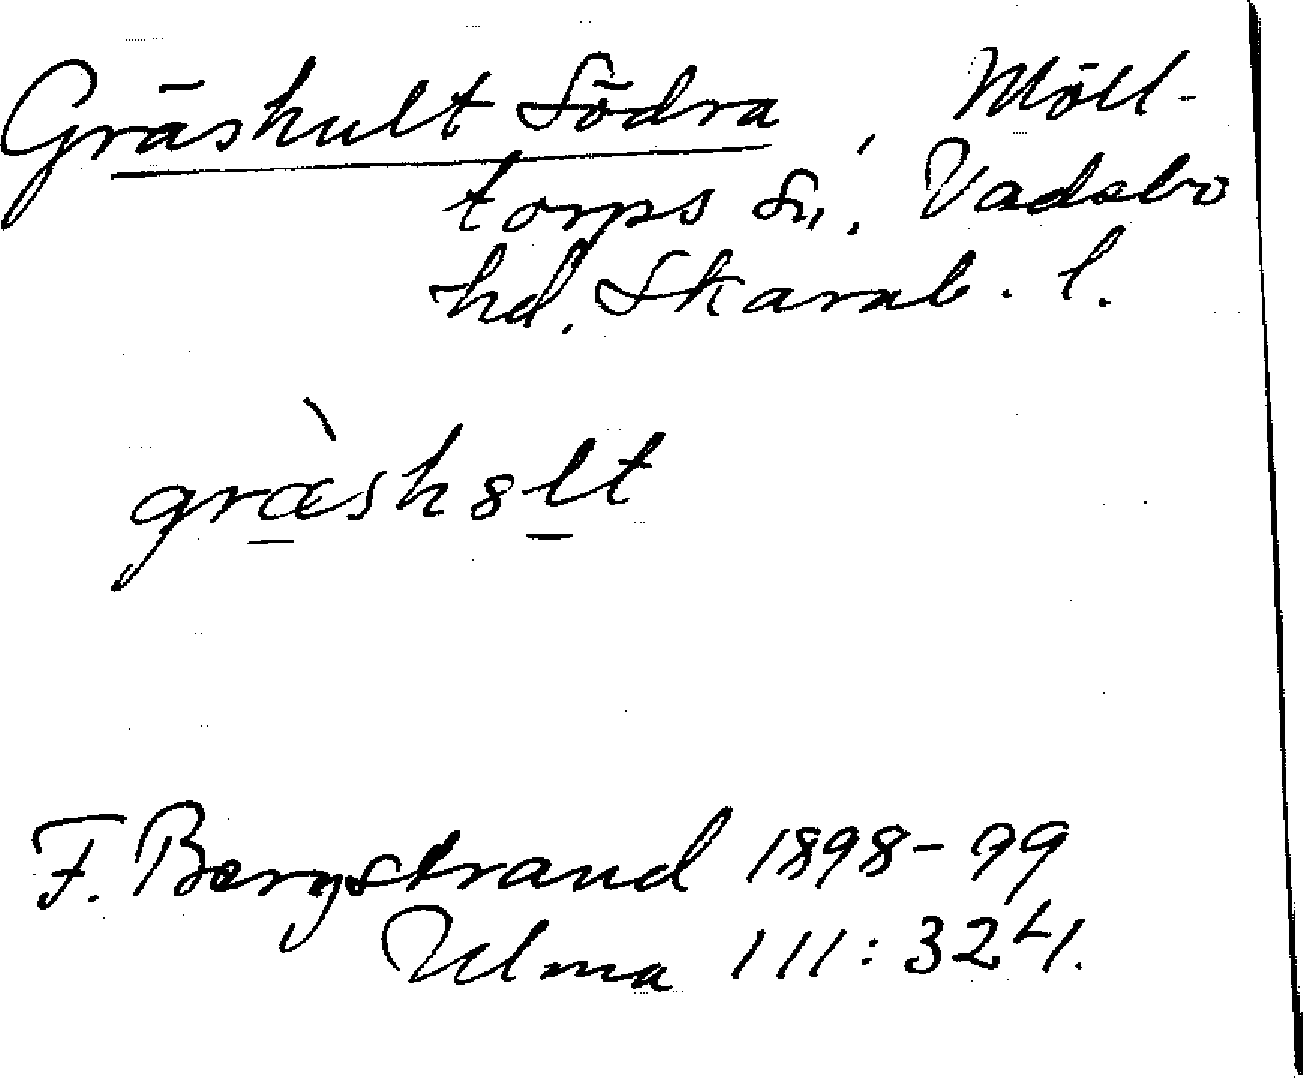 Gräshult Södra, Möll-
torps sn, Vadsbo
hd. Skarab. l.
græ̀shȣlt
F. Bergstrand 1898-99
Ulma 111:324.